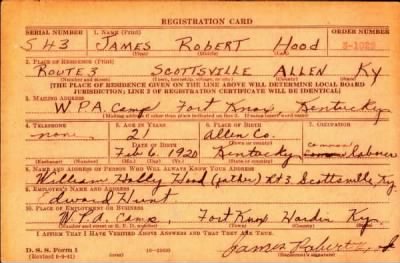 REGISTRATION CARD
SERIAL NUMBER 1. NAME (Print) ORDER NUMBER
543 JAMES ROBERT HOOD
(First) (Middle) (Last)
2. PLACE OF RESIDENCE (Print)
ROUTE 3 SCOTTSVILLE ALLEN KY
(Number and street) (Town, township, village, or city) (County) (State)
[THE PLACE OF RESIDENCE GIVEN ON THE LINE ABOVE WILL DETERMINE LOCAL BOARD
JURISDICTION; LINE 2 OF REGISTRATION CERTIFICATE WILL BE IDENTICAL]
3. MAILING ADDRESS
W.P.A. Camp Fort Knox Kentucky
[Mailing address if other than place indicated on line 2. If same insert word same]
4. TELEPHONE 5. AGE IN YEARS 6. PLACE OF BIRTH 7. OCCUPATION
none 21 Allen Co.
DATE OF BIRTH (Town or county) common
Feb 6 1920 Kentucky laborer
(Exchange) (Number) (Mo.) (Day) (Yr.) (State or country)
8. NAME AND ADDRESS OF PERSON WHO WILL ALWAYS KNOW YOUR ADDRESS
William Holly Hood (father) Rt 3 Scottsville, Ky
9. EMPLOYER'S NAME AND ADDRESS
Edward Hunt
10. PLACE OF EMPLOYMENT OR BUSINESS
W.P.A. Camp, Fort Knox Hardin Ky.
(Number and street or R. F. D. number) (Town) (County) (State)
I AFFIRM THAT I HAVE VERIFIED ABOVE ANSWERS AND THAT THEY ARE TRUE.
D. S. S. Form 1
James Robert Hood